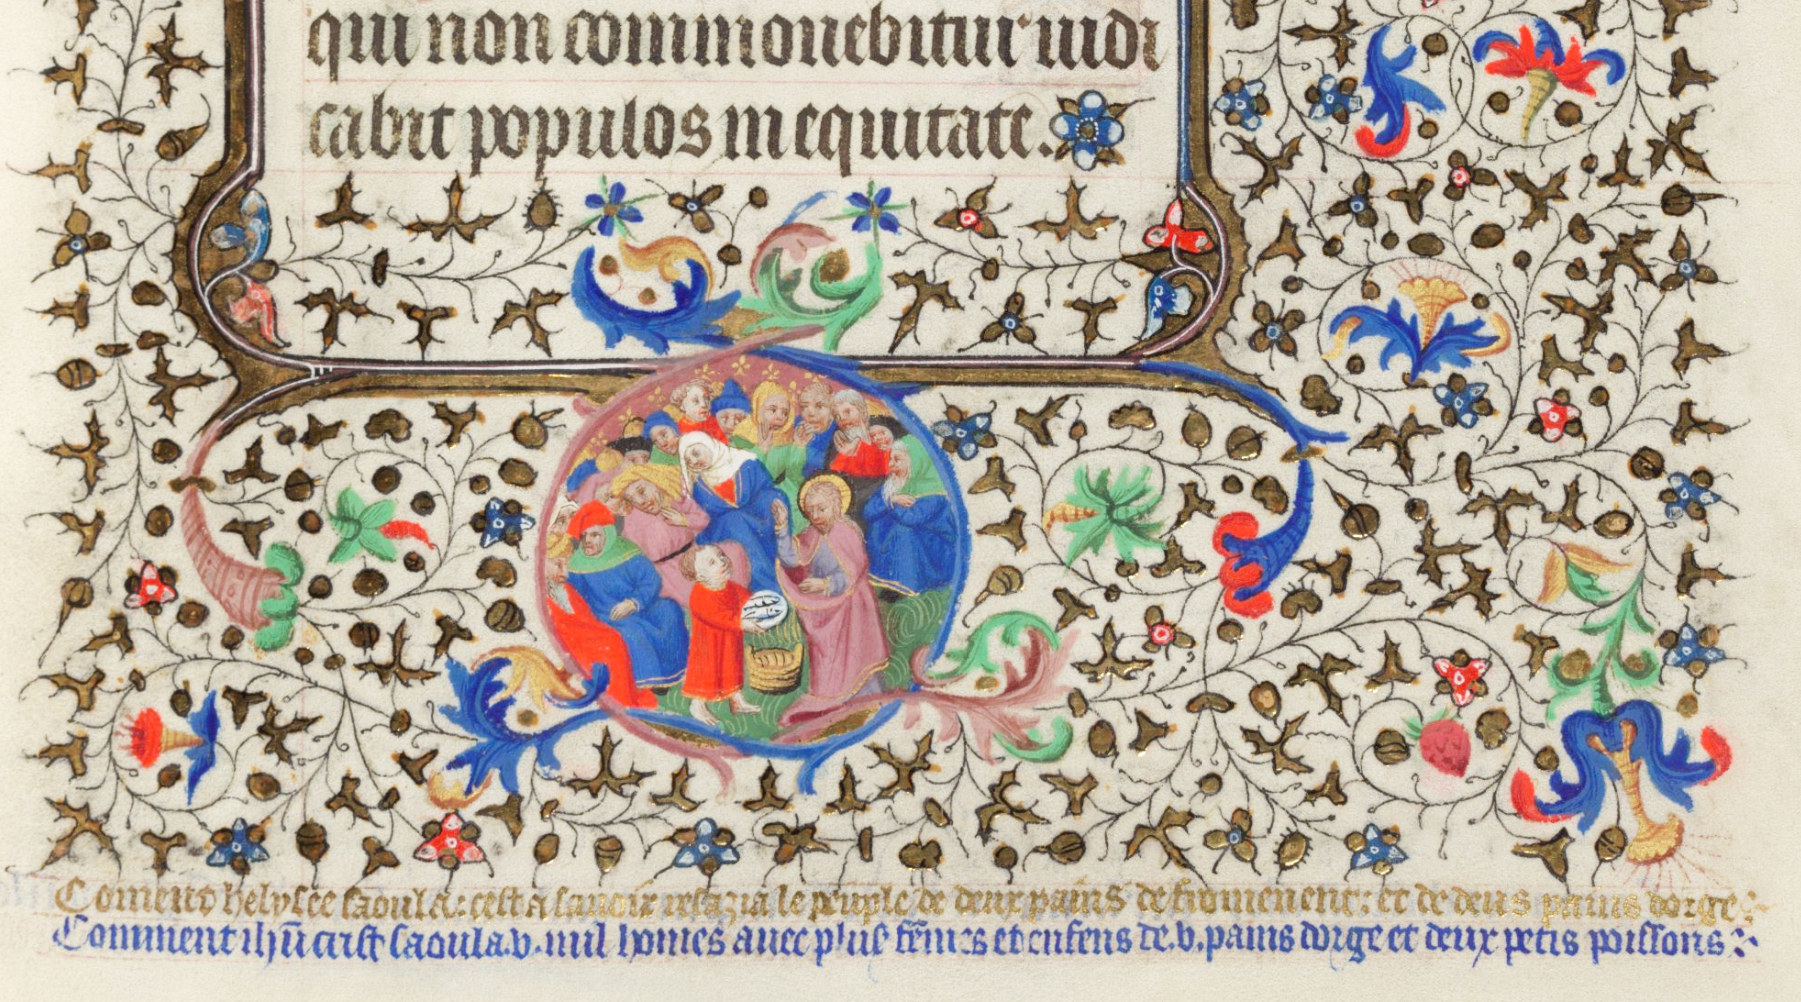 qui non commouebitur iudi
cabit populos in equitate.
Coment helysee saoula: cest a sauoir resazia le peuple de deux pains de fromenent: et de deus pains dorge:
Comment ihū crist saoula .v. mil homes auec plus fēmes et enfens de .v. pains dorge et deux petis poissons: